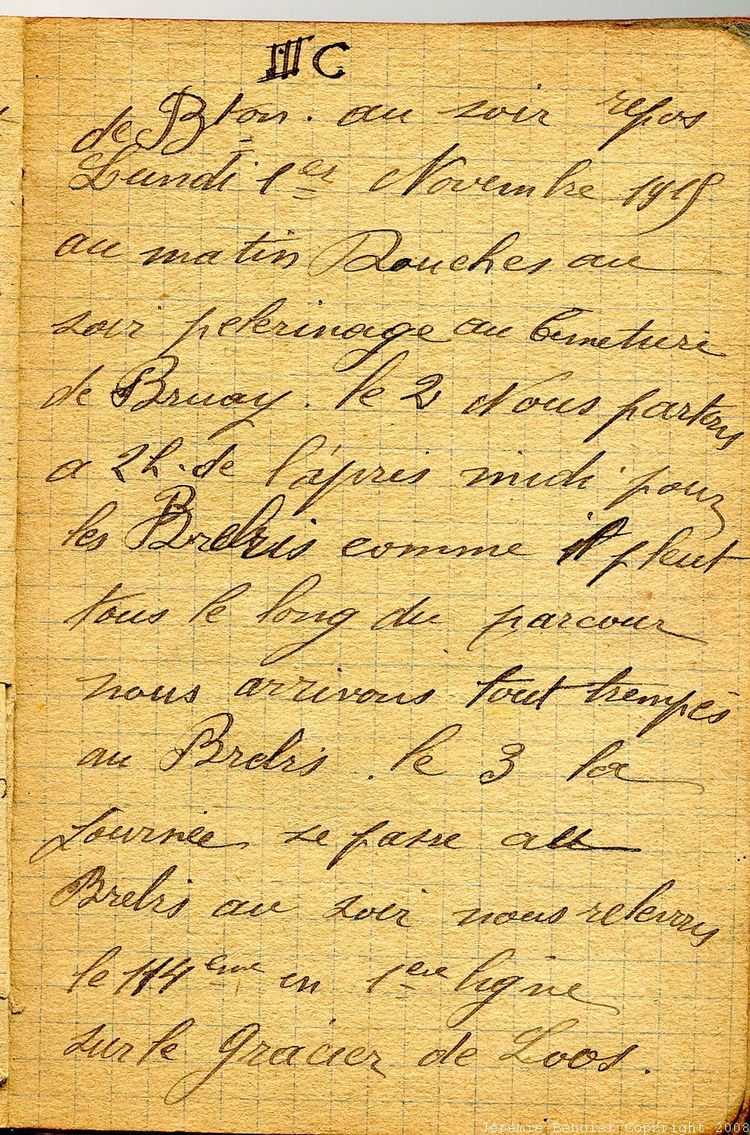 IIII C
de Bton. au soir repos
Lundi 1er Novembre 1915
au matin Douches au
soir pelerinage au Cimetiere
de Bruay. le 2 Nous partons
a 2h. de l'apres midi pour
les Brebis comme il pleut
tous le long du parcour
nous arrivons tout trempés
au Brebis. le 3 la
Journée se passe au
Brebis au soir nous relevons
le 114eme en 1ere ligne
sur le Gracier de Loos.
Jérémie Benoist Copyright 2008